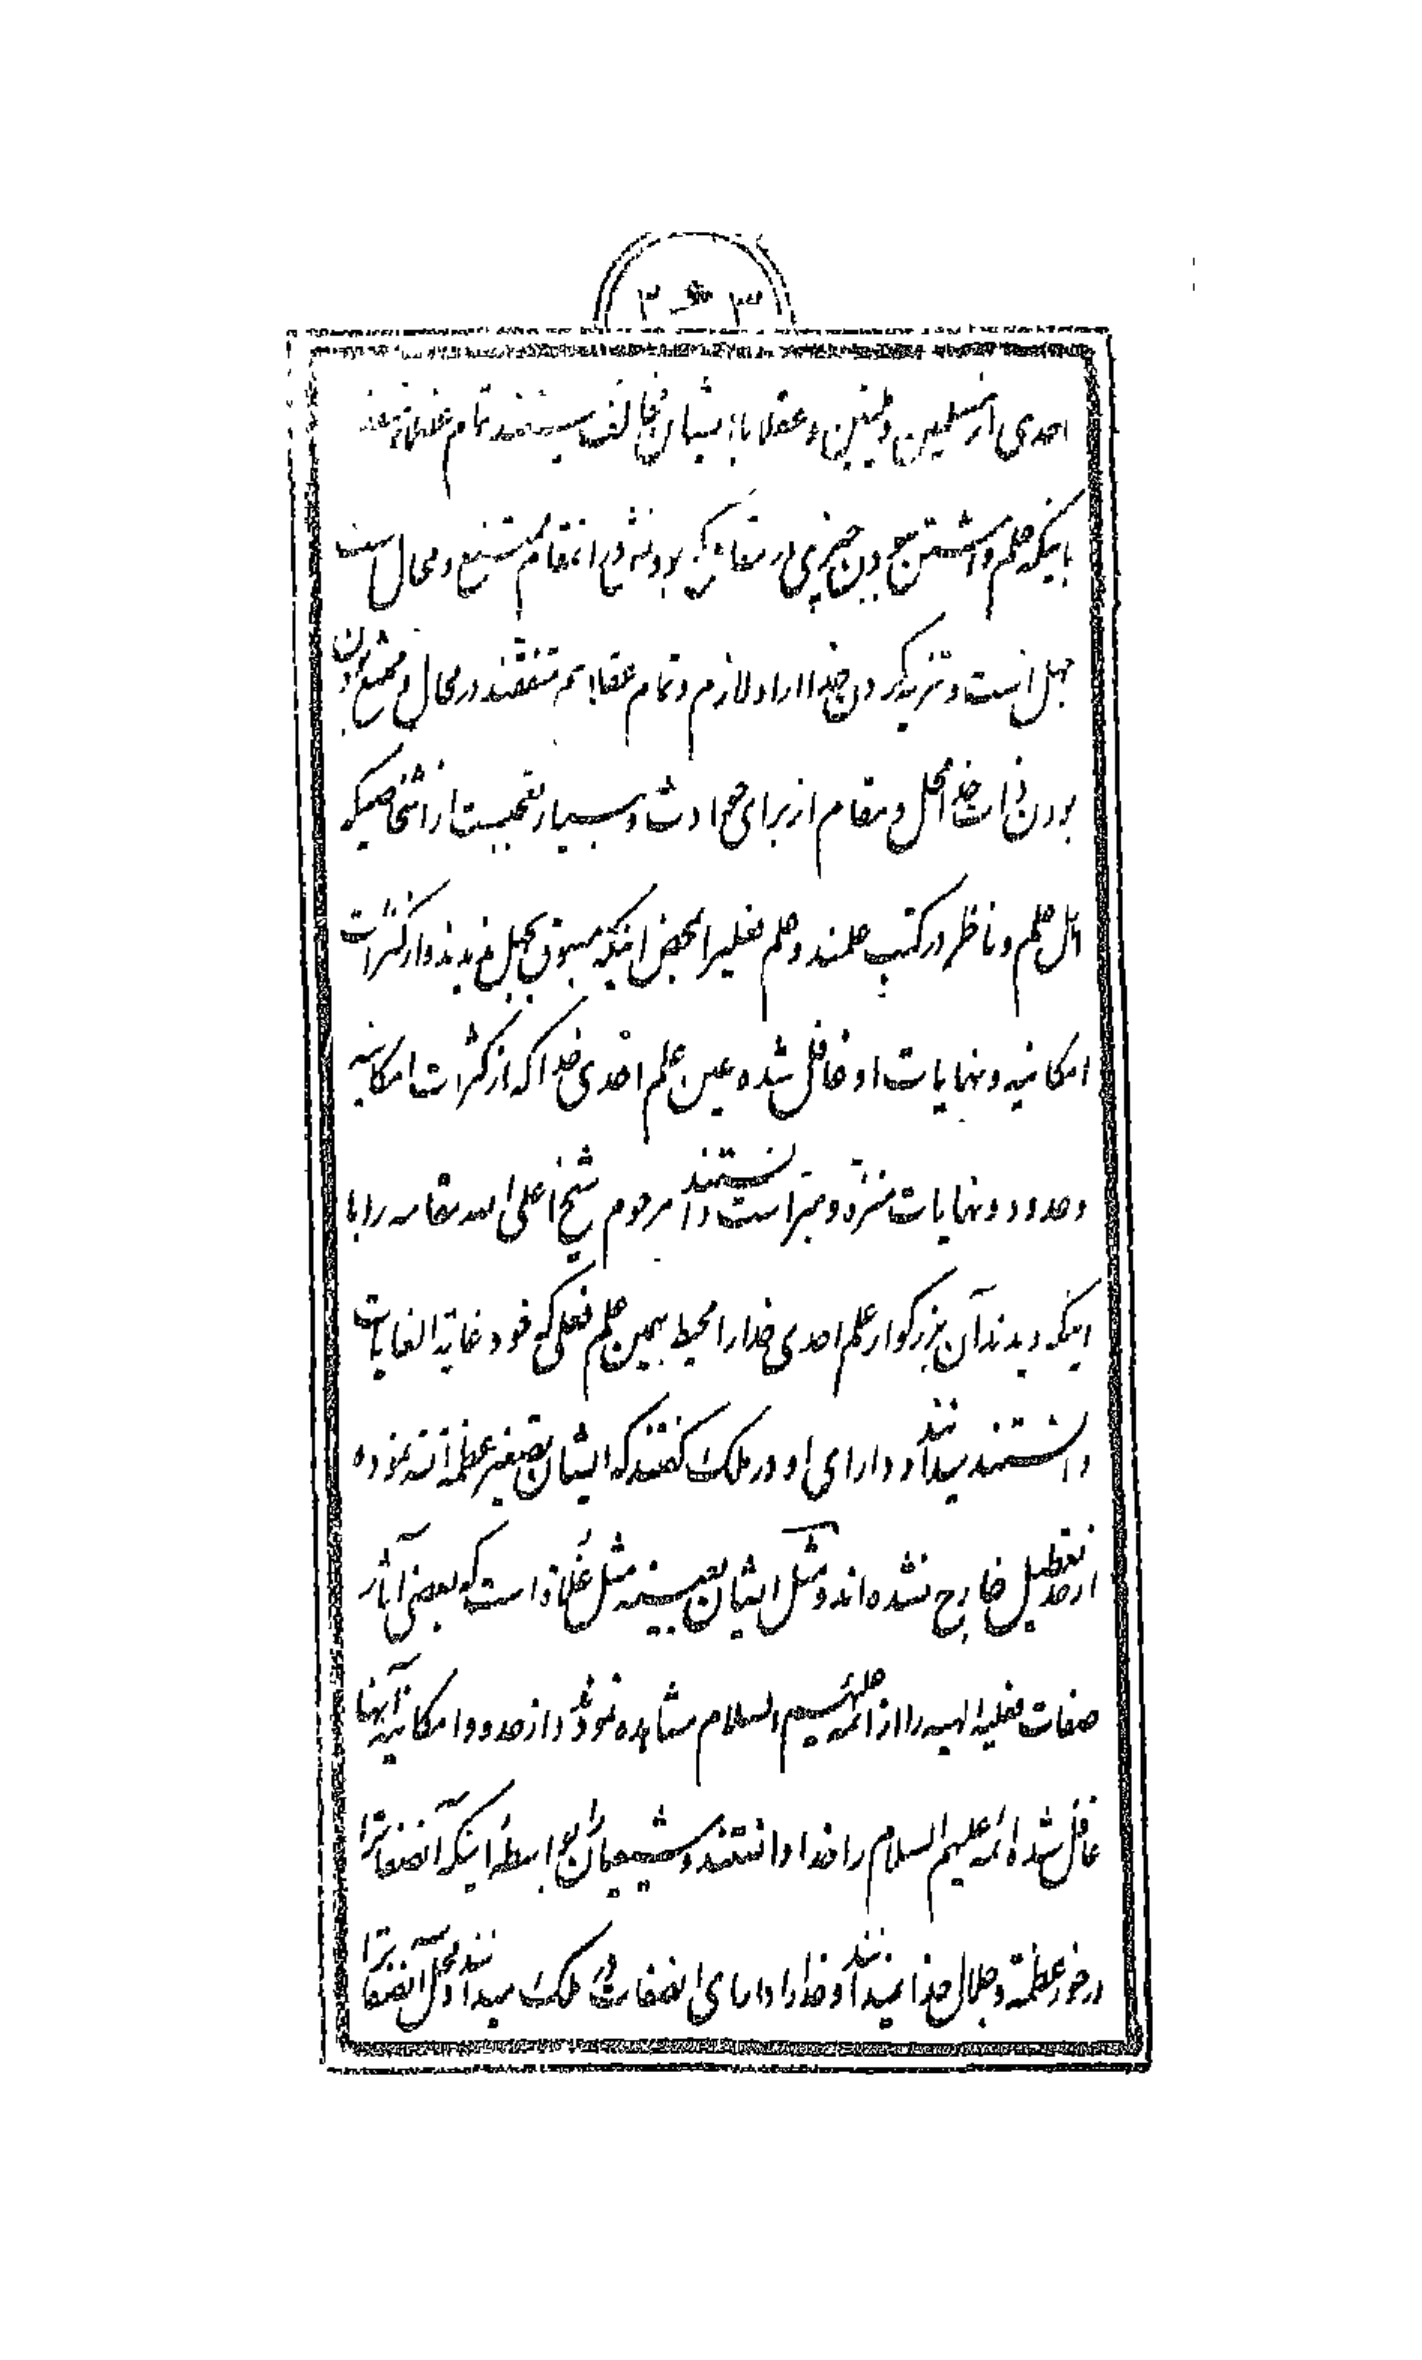 احدی از مسلمین و ملیین و عقلا با ایشان مخالف نیستند تمام عقلا
باینکه علم داشتن بچیزی در مقامیکه بودنش در انمقام ممتنع و محال است
جهل است و تنزیه کردن خدا را از او لازم و تمام عقلا هم متفقند در محال و ممتنع بودن
بودن ذات خدا محل و مقام از برای حوادث و بسیار تعجبست از اشخاصیکه
اهل علم و ناظر در کتب علمند و علم فعلیرا بمحض اینکه مسبوق بجهل ندیدند و از کثرات
امکانیه و نهایات او غافل شده عین علم احدی خدا که از کثرات امکانیه
و حدود و نهایات منزه و مبراست دانستند مرحوم شیخ اعلی الله مقامه را با
اینکه دیدند آن بزرگوار علم احدی خدا را محیط بهمین علم فعلی که خود غایة الغایات
دانستند میدانند و دارای او در ملک گفتند که ایشان تصغیر عظمة الله نموده
از حد تعطیل خارج نشده اند و مثل ایشان بعینه مثل غلاة است که بعضی آثار
صفات فعلیه الهیه را از ائمه علیهم السلام مشاهده نمودند و از حدود امکانیه آنها
غافل شده ائمه علیهم السلام را خدا دانستند و شیعیان را بواسطه اینکه آنصفاترا
در خور عظمة و جلال خدا نمیدانند و خدا را دارای انصفات در ملک میدانند و محل آنصفاترا